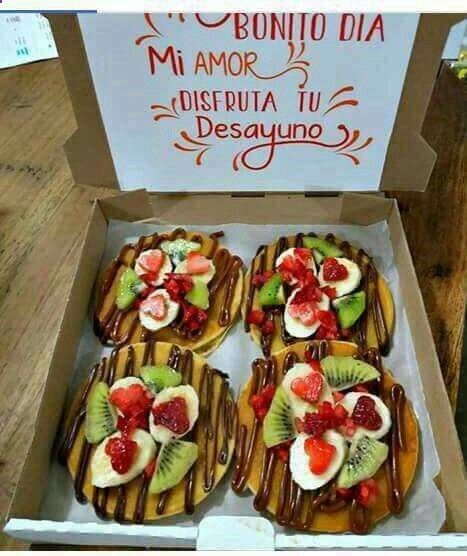 BONITO DIA
Mi AMOR
DISFRUTA TU
Desayuno